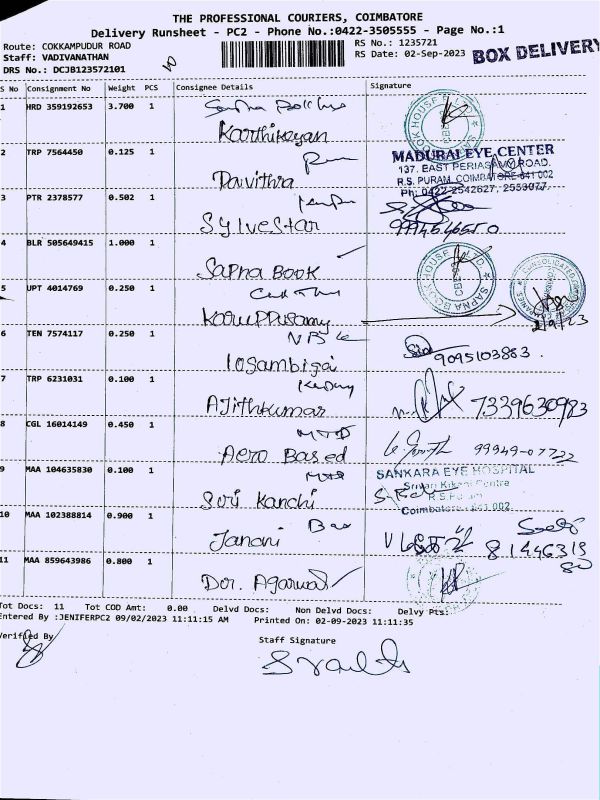 THE PROFESSIONAL COURIERS, COIMBATORE
Delivery Runsheet - PC2 - Phone No.:0422-3505555 - Page No.:1
Route: COKKAMPUDUR ROAD
Staff: VADIVANATHAN
DRS No.: DCJB123572101
RS No.: 1235721
RS Date: 02-Sep-2023
BOX DELIVERY
S No Consignment No Weight PCS Consignee Details Signature
1 HRD 359192653 3.700 1
Karthikeyan
2 TRP 7564450 0.125 1
Pavithra
MADURAI EYE CENTER
137, EAST PERIASAMY ROAD.
R.S. PURAM, COIMBATORE-641 002
Ph: 0422-2542627, 2553077
3 PTR 2378577 0.502 1
Sylvestar
4 BLR 505649415 1.000 1
Sapna Book
SAPNA BOOK HOUSE
5 UPT 4014769 0.250 1
Karuppusamy
2/9/23
6 TEN 7574117 0.250 1
logambigai
9095103883
7 TRP 6231031 0.100 1
Ajithkumar
7339630983
8 CGL 16014149 0.450 1
Aero Based
99949-07722
9 MAA 104635830 0.100 1
Sori Kanchi
SANKARA EYE HOSPITAL
R.S.Puram
Coimbatore - 641 002
10 MAA 102388814 0.900 1
Janani
11 MAA 859643986 0.800 1
Dor. Agarwal
Tot Docs: 11 Tot COD Amt: 0.00 Delvd Docs: Non Delvd Docs: Delvy Pts:
Entered By :JENIFERPC2 09/02/2023 11:11:15 AM Printed On: 02-09-2023 11:11:35
Verified By
Staff Signature